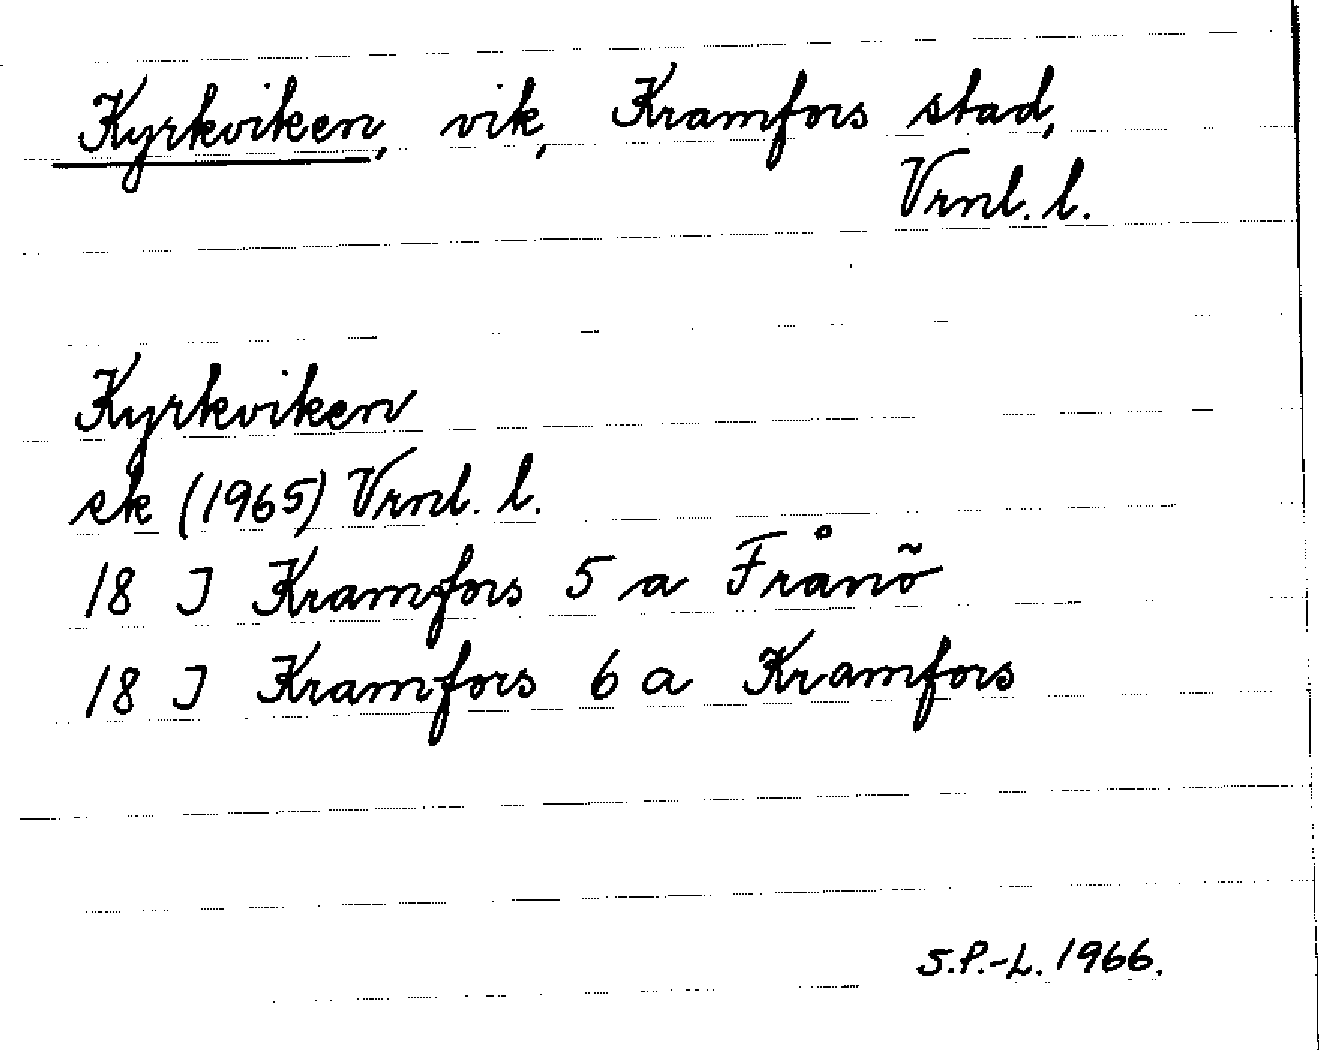 Kyrkviken, vik, Kramfors stad,
Vrnl. l.
Kyrkviken
ek (1965) Vrnl. l.
18 J Kramfors 5 a Frånö
18 J Kramfors 6 a Kramfors
S.P.-L. 1966.